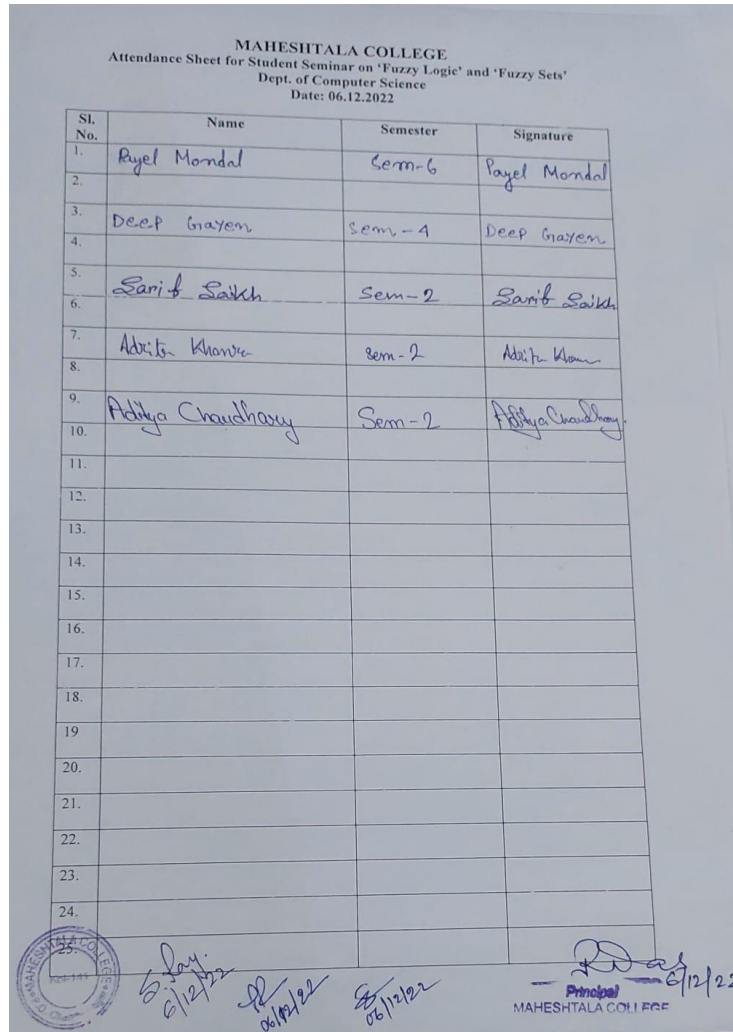 MAHESHTALA COLLEGE
Attendance Sheet for Student Seminar on ‘Fuzzy Logic’ and ‘Fuzzy Sets’
Dept. of Computer Science
Date: 06.12.2022
Sl. No. Name Semester Signature
1. Payel Mondal Sem-6 Payel Mondal
2.
3. Deep Gayen Sem-4 Deep Gayen
4.
5. Sarif Saikh Sem-2 Sarif Saikh
6.
7. Adrita Khanra Sem-2 Adrita
8.
9. Aditya Chaudhary Sem-2 Aditya Chaudhary.
10.
11.
12.
13.
14.
15.
16.
17.
18.
19
20.
21.
22.
23.
24.
25.
MAHESHTALA COLLEGE
S. Ray.
6/12/22
06/12/22
06/12/22
6/12/22
Principal
MAHESHTALA COLLEGE